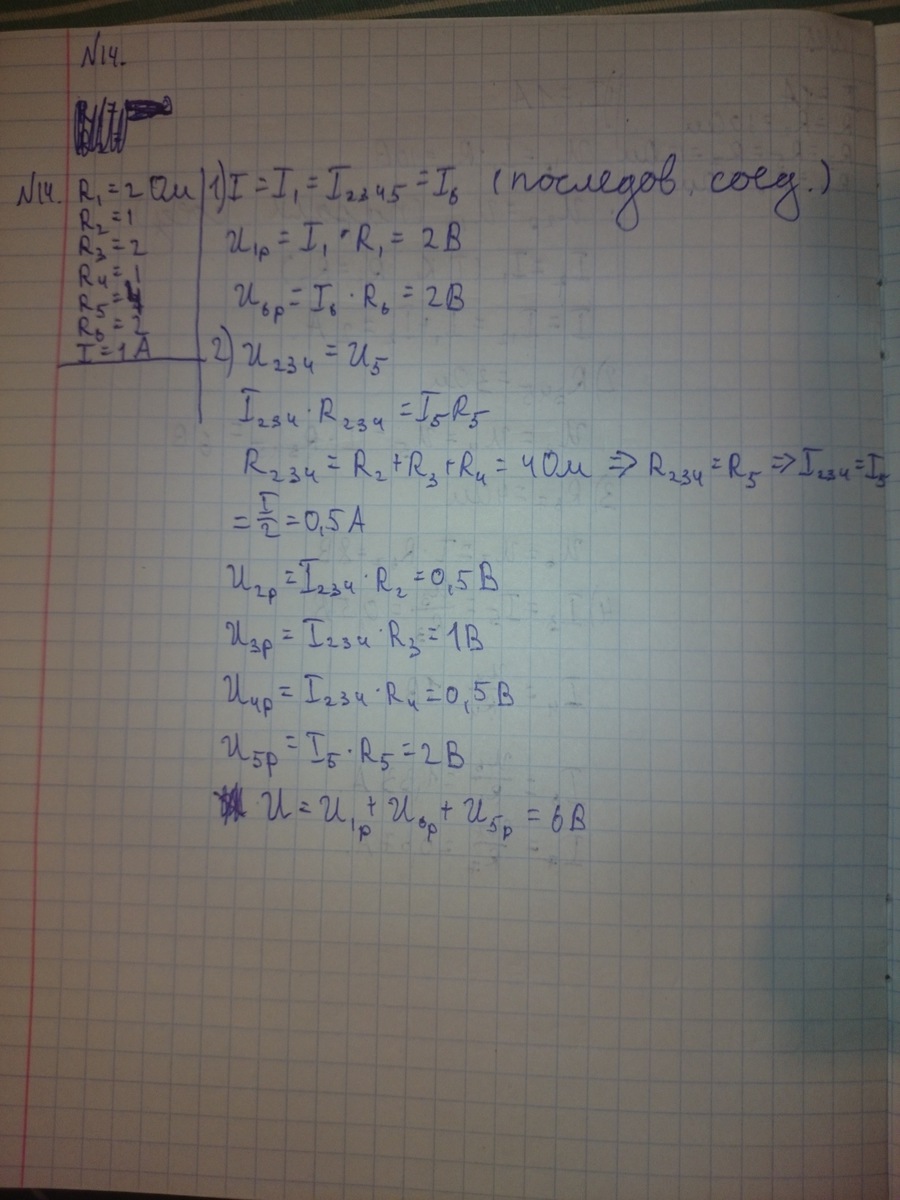 N14.
N14. R₁ = 2 Ом
R₂ = 1
R₃ = 2
R₄ = 1
R₅ = 4
R₆ = 2
I = 1 А
1) I = I₁ = I₂₃₄₅ = I₆ (последов. соед.)
U₁ₚ = I₁ · R₁ = 2В
U₆ₚ = I₆ · R₆ = 2В
2) U₂₃₄ = U₅
I₂₃₄ · R₂₃₄ = I₅R₅
R₂₃₄ = R₂ + R₃ + R₄ = 4Ом => R₂₃₄ = R₅ => I₂₃₄ = I₅
= I/2 = 0,5 А
U₂ₚ = I₂₃₄ · R₂ = 0,5 В
U₃ₚ = I₂₃₄ · R₃ = 1В
U₄ₚ = I₂₃₄ · R₄ = 0,5 В
U₅ₚ = I₅ · R₅ = 2В
U = U₁ₚ + U₆ₚ + U₅ₚ = 6В